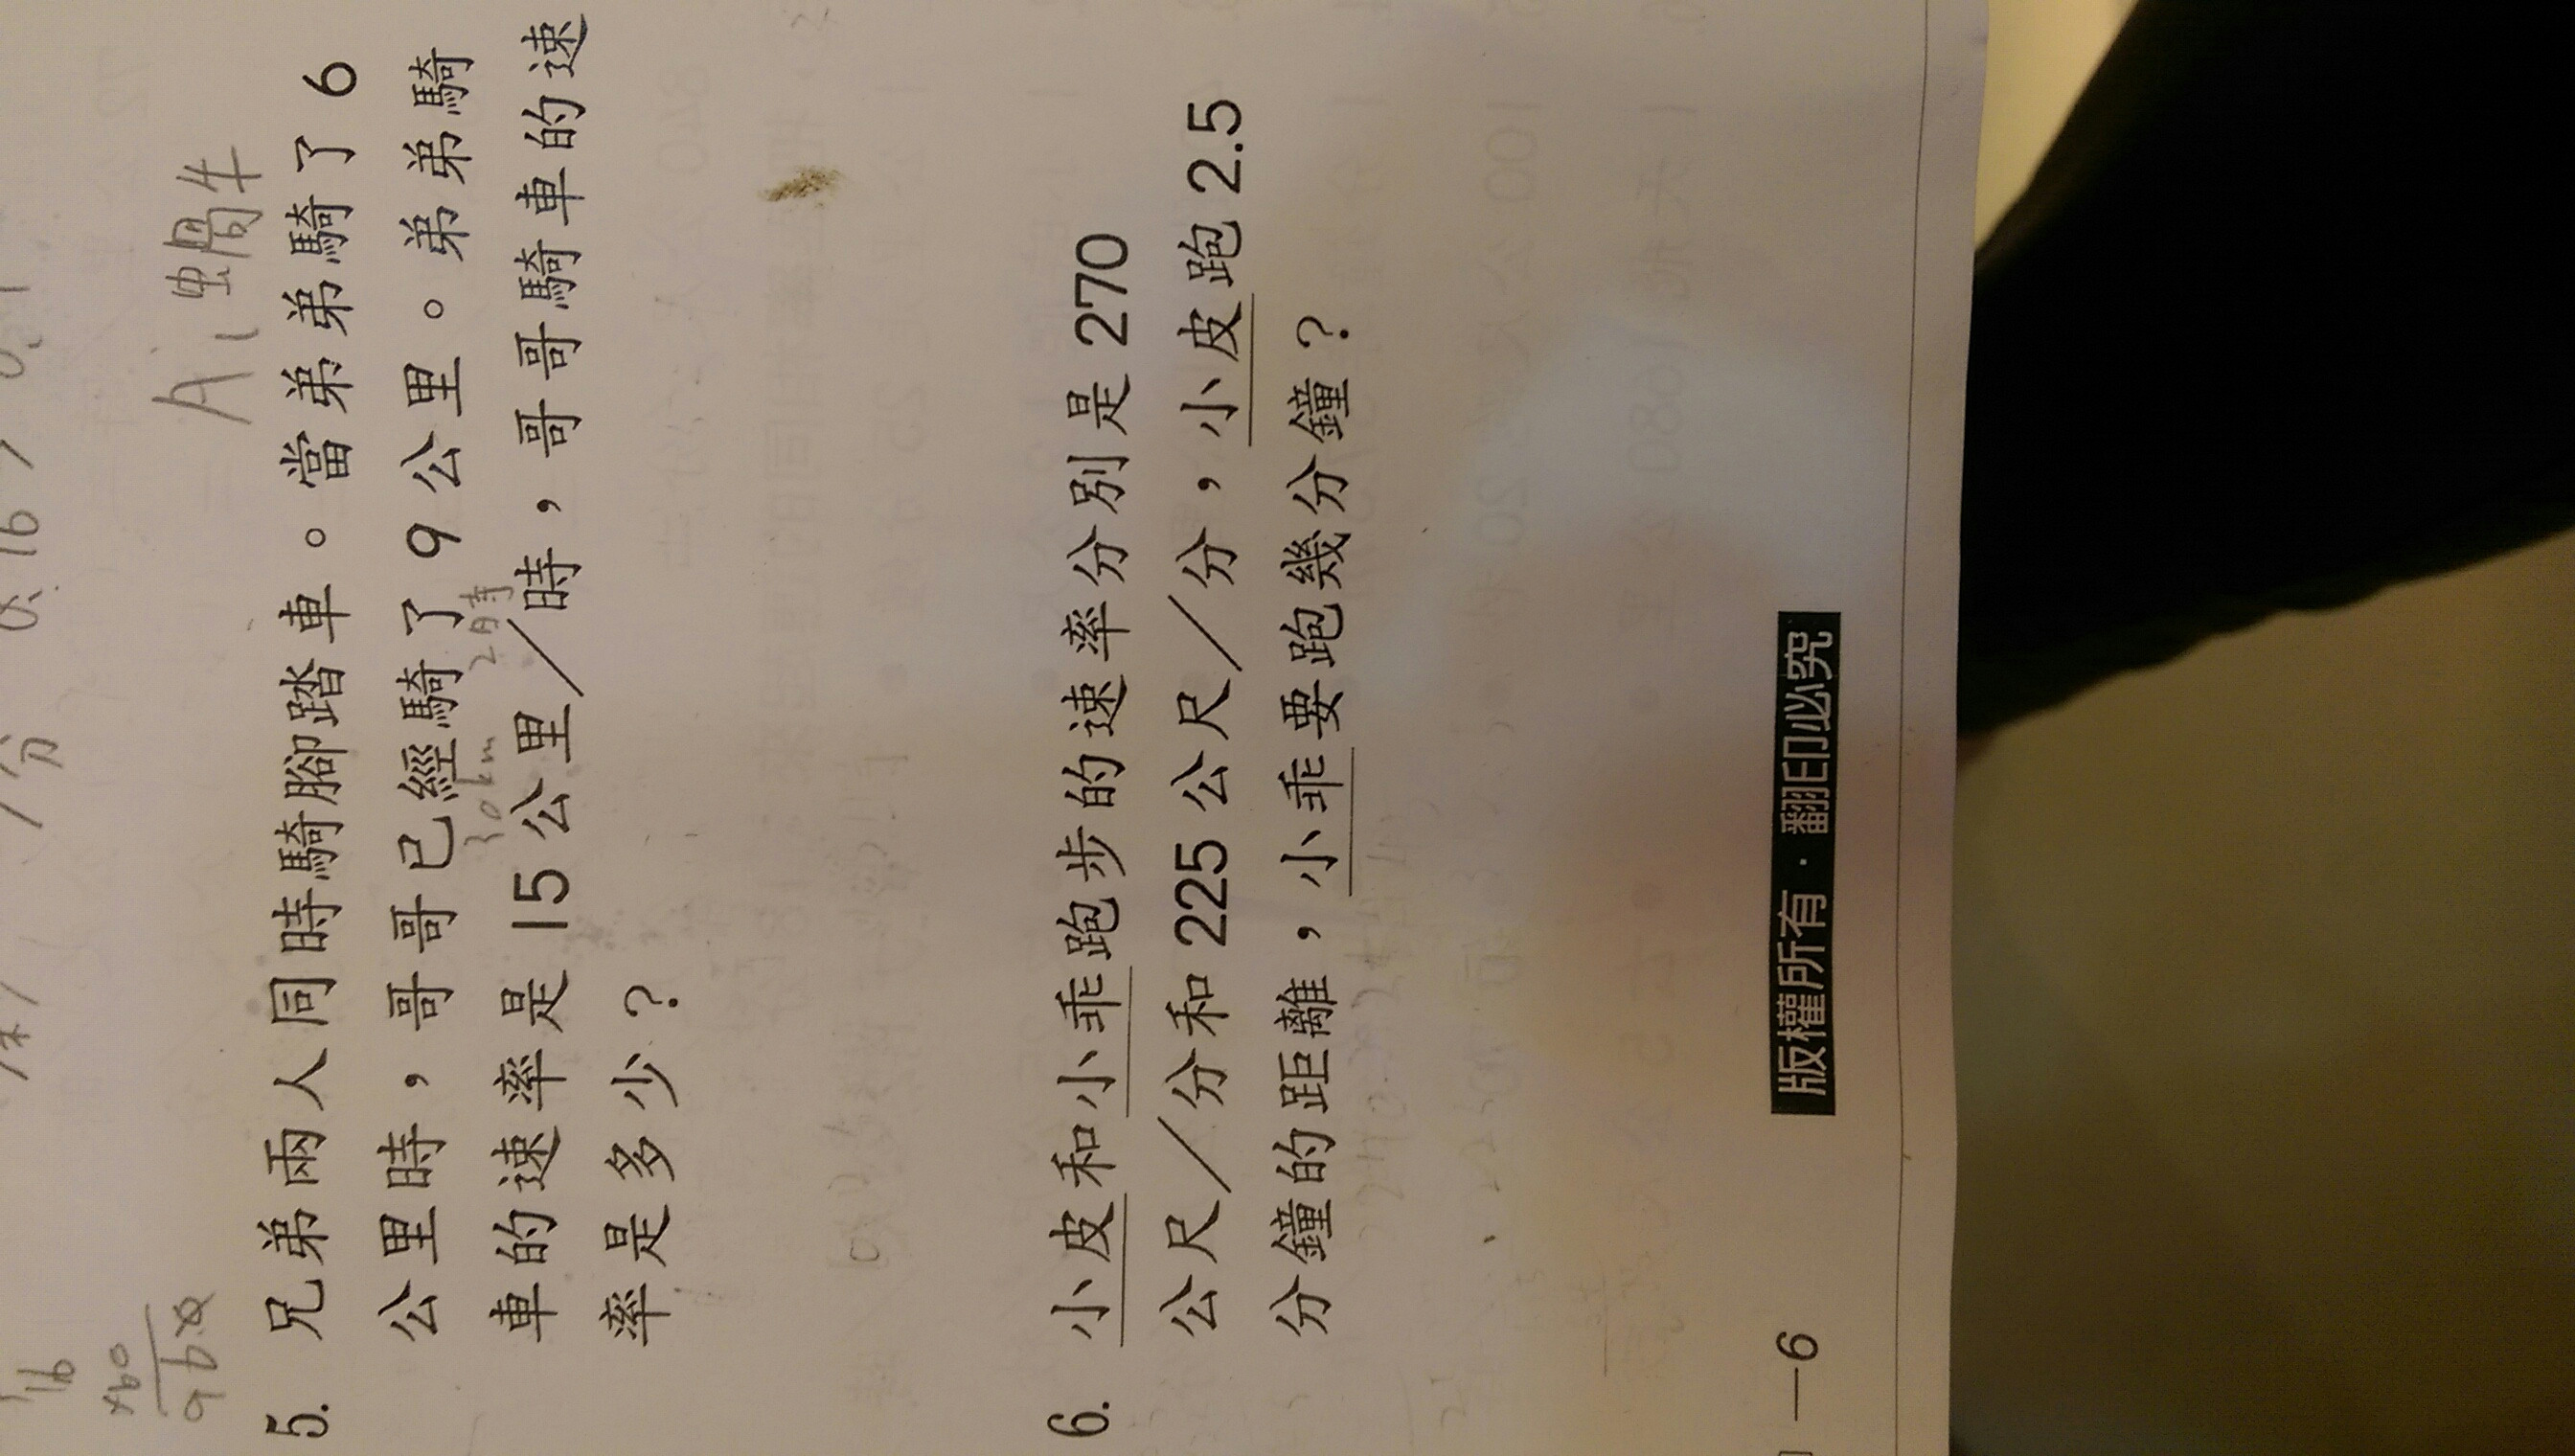 16
x60
960
A:蝸牛
5. 兄弟兩人同時騎腳踏車。當弟弟騎了 6
公里時，哥哥已經騎了 9 公里。弟弟騎
30km 2時
車的速率是 15 公里／時，哥哥騎車的速
率是多少？
6. 小皮和小乖跑步的速率分別是 270
公尺／分和 225 公尺／分，小皮跑 2.5
分鐘的距離，小乖要跑幾分鐘？
版權所有·翻印必究
—6